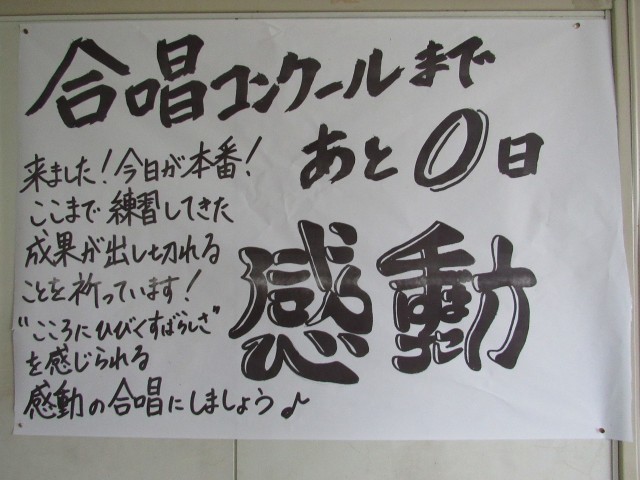 合唱コンクールまで
あと0日
来ました！今日が本番！
ここまで練習してきた
成果が出し切れる
ことを祈っています！
"こころにひびくすばらしさ"
を感じられる
感動の合唱にしましょう♪
感動